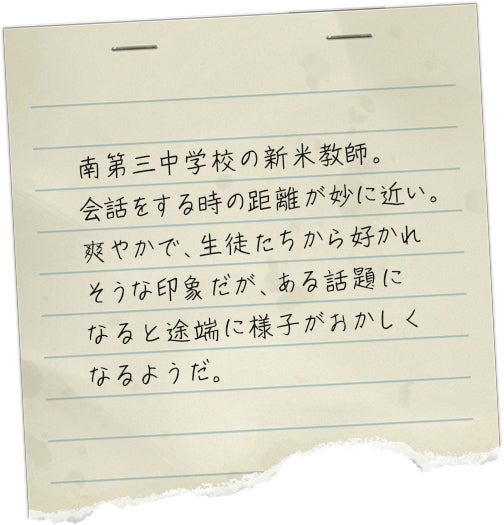 南第三中学校の新米教師。
会話をする時の距離が妙に近い。
爽やかで、生徒たちから好かれ
そうな印象だが、ある話題に
なると途端に様子がおかしく
なるようだ。